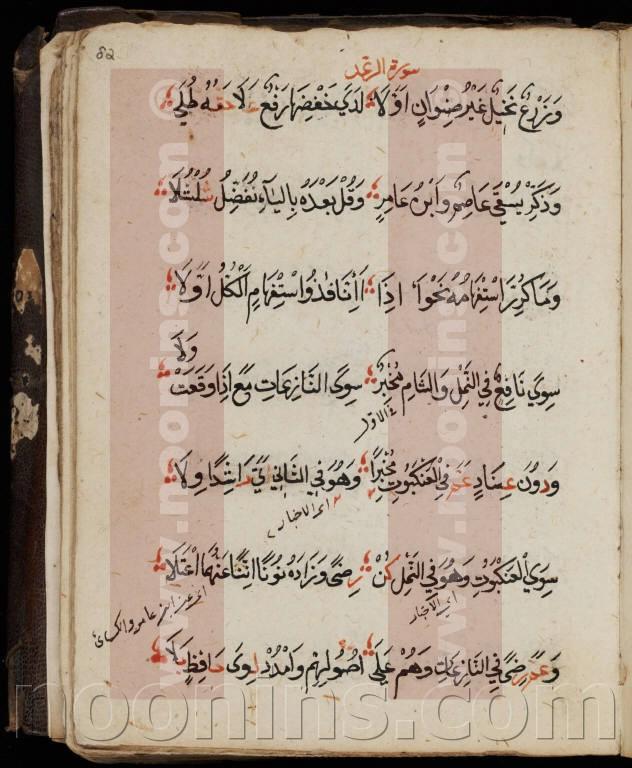 82
سورة الرعد
وَزَرْعٌ نَخِيلٌ غَيْرُ صِنْوَانٍ اَوَّلَا لَدَى خَفْضِهَا رَفْعٌ عَلَا حَقُّهُ طُلَى
وَذَكَّرَ يُسْقَى عَاصِمٌ وَابْنُ عَامِرٍ وَقُلْ بَعْدَهُ بِالْيَاءِ نُفَضِّلُ شُلْشُلَا
وَمَا كُرِّرَ اسْتِفْهَامُهُ نَحْوُ اَاِذَا اَاِنَّا فَذُو اسْتِفْهَامٍ الْكُلُّ اَوَّلَا
سِوَى نَافِعٍ فِي النَّمْلِ وَالشَّامِ مُخْبِرٌ سِوَى النَّازِعَاتِ مَعْ اِذَا وَقَعَتْ وِلَا
فى الاول
وَدُونَ عِنَادٍ عَمَّ فِي الْعَنْكَبُوتِ مُخْبِرًا وَهُوَ فِي الثَّانِي اَتَى رَاشِدًا وِلَا
اى الاخبار
سِوَى الْعَنْكَبُوتِ وَهُوَ فِي النَّمْلِ كُنْ رِضًى وَزَادَهُ نُونًا اِنَّنَا عَنْهُمَا اعْتَلَا
اى الاخبار
اى عن ابن عامر والكسائى
وَعَمَّ رِضًى فِي النَّازِعَاتِ وَهُمْ عَلَى اُصُولِهِمْ وَامْدُدْ لِوَى حَافِظٍ بَلَا
www.noonins.com ©
www.noonins.com ©
noonins.com